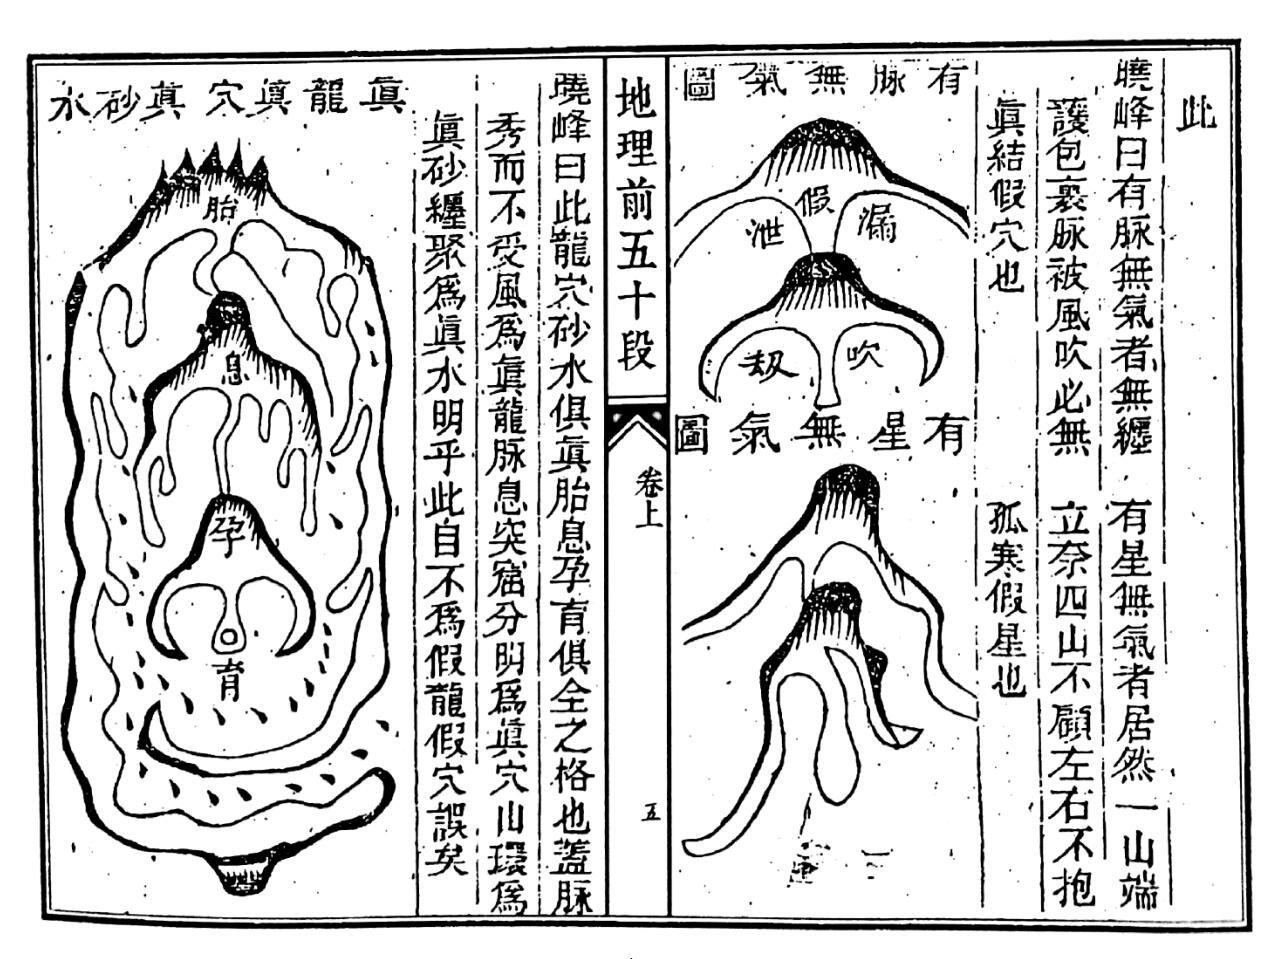 此
曉峰曰有脉無氣者無纒
護包裹脉被風吹必無
眞結假穴也
有星無氣者居然一山端
立奈四山不顧左右不抱
孤寒假星也
有脉無氣圖
漏
假
泄
吹
刼
有星無氣圖
地理前五十段
卷上
五
曉峰曰此龍穴砂水俱眞胎息孕育俱全之格也蓋脉
秀而不受風爲眞龍脉息突窟分明爲眞穴山環爲
眞砂纒聚爲眞水明乎此自不爲假龍假穴誤矣
眞龍眞穴眞砂水
胎
息
孕
育